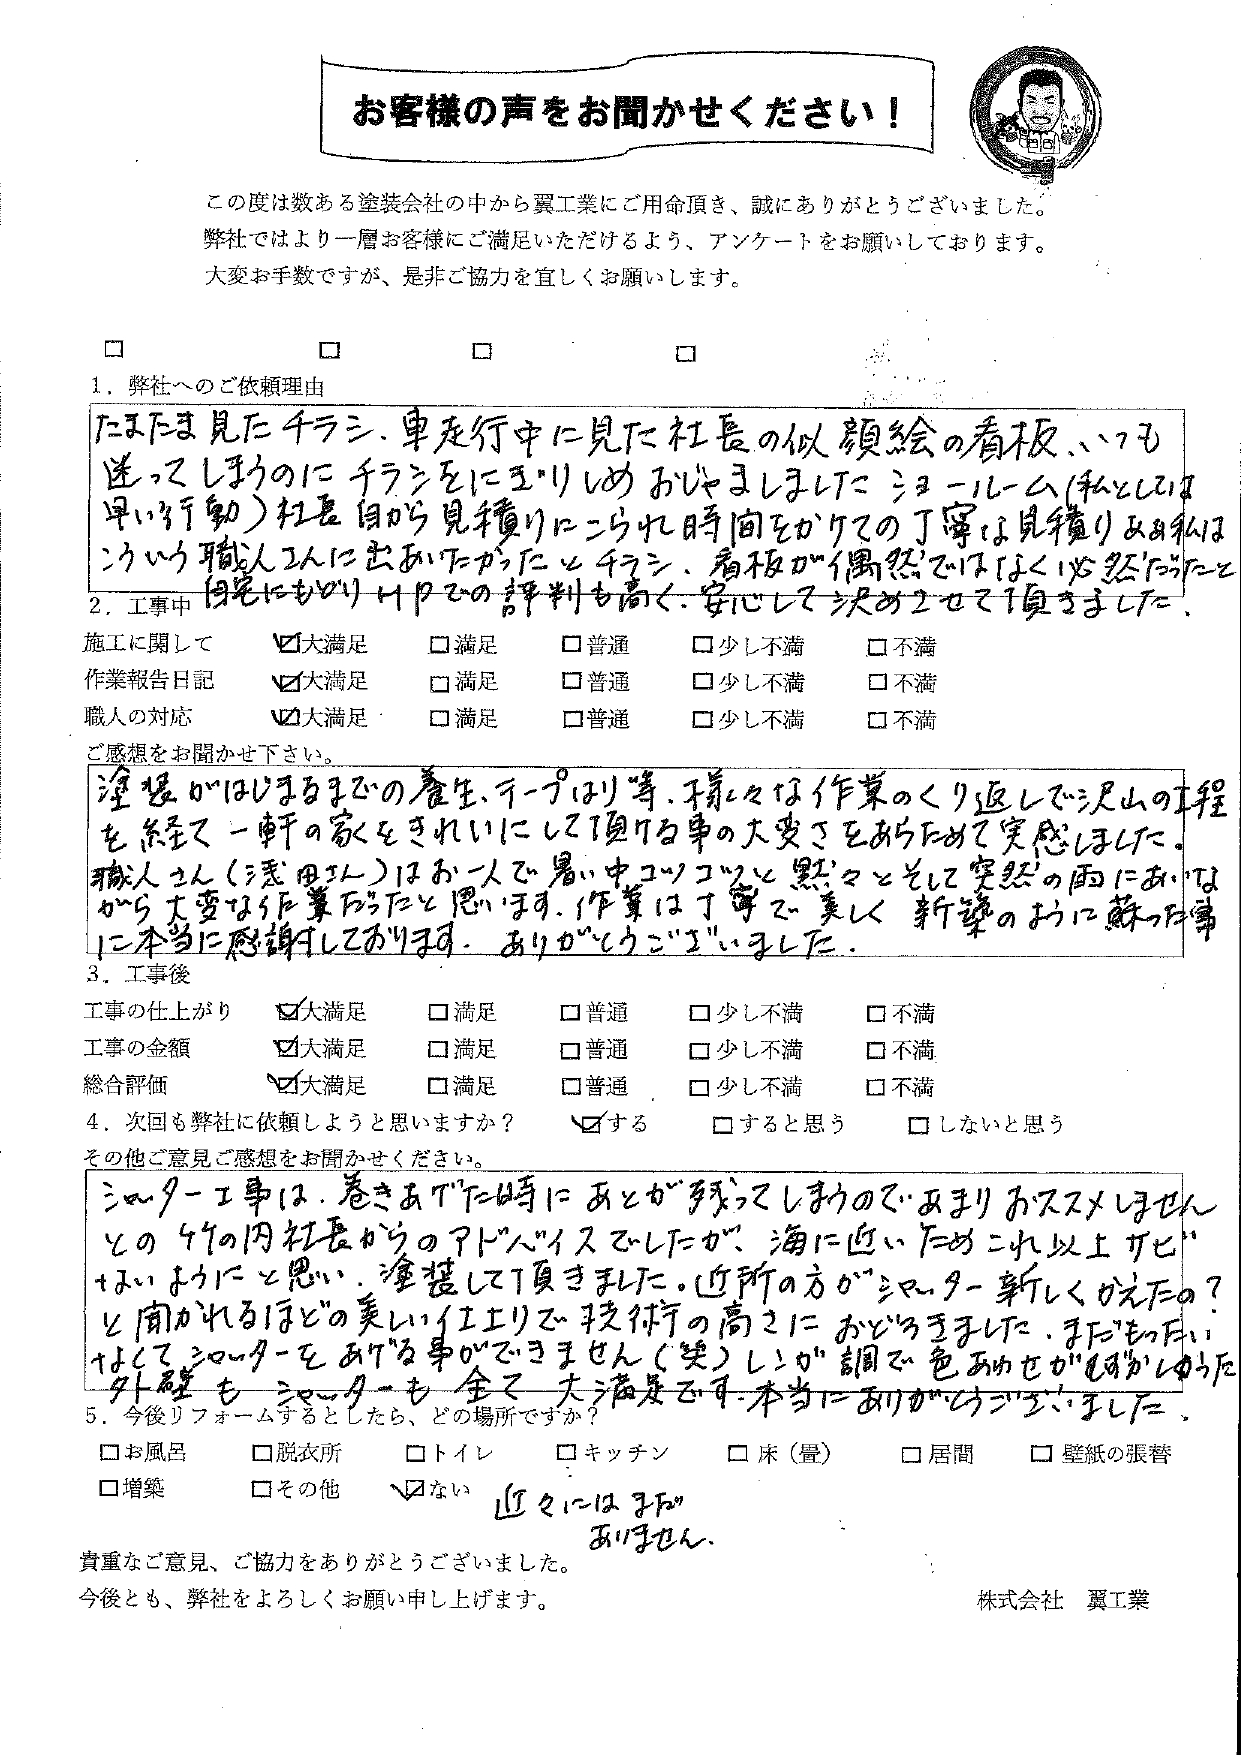 お客様の声をお聞かせください！
この度は数ある塗装会社の中から翼工業にご用命頂き、誠にありがとうございました。
弊社ではより一層お客様にご満足いただけるよう、アンケートをお願いしております。
大変お手数ですが、是非ご協力を宜しくお願いします。
□ □ □ □
1．弊社へのご依頼理由
たまたま見たチラシ、車走行中に見た社長の似顔絵の看板、いつも
迷ってしまうのにチラシをにぎりしめおじゃましましたショールーム(私としては
早い行動)社長自から見積りにこられ時間をかけての丁寧な見積りああ私は
こういう職人さんに出あいたかったとチラシ、看板が偶然ではなく必然だったと
自宅にもどりHPでの評判も高く、安心して決めさせて頂きました。
2．工事中
施工に関して ☑大満足 □満足 □普通 □少し不満 □不満
作業報告日記 ☑大満足 □満足 □普通 □少し不満 □不満
職人の対応 ☑大満足 □満足 □普通 □少し不満 □不満
ご感想をお聞かせ下さい。
塗装がはじまるまでの養生、テープはり等、様々な作業のくり返しで沢山の工程
を経て一軒の家をきれいにして頂ける事の大変さをあらためて実感しました。
職人さん(浅田さん)はお一人で暑い中コツコツと黙々とそして突然の雨にあいな
がら大変な作業だったと思います。作業は丁寧で美しく新築のように蘇った事
に本当に感謝しております。ありがとうございました。
3．工事後
工事の仕上がり ☑大満足 □満足 □普通 □少し不満 □不満
工事の金額 ☑大満足 □満足 □普通 □少し不満 □不満
総合評価 ☑大満足 □満足 □普通 □少し不満 □不満
4．次回も弊社に依頼しようと思いますか？ ☑する □すると思う □しないと思う
その他ご意見ご感想をお聞かせください。
シャッター工事は、巻きあげた時にあとが残ってしまうのであまりおススメしません
との竹の内社長からのアドバイスでしたが、海に近いためこれ以上サビ
ないようにと思い、塗装して頂きました。近所の方がシャッター新しくかえたの？
と聞かれるほどの美しい仕上りで技術の高さにおどろきました。まだもったい
なくてシャッターをあげる事ができません(笑)レンガ調で色あわせがむずかしかった
外壁もシャッターも全て大満足です。本当にありがとうございました。
5．今後リフォームするとしたら、どの場所ですか？
□お風呂 □脱衣所 □トイレ □キッチン □床（畳） □居間 □壁紙の張替
□増築 □その他 ☑ない 近々にはまだ
ありません。
貴重なご意見、ご協力をありがとうございました。
今後とも、弊社をよろしくお願い申し上げます。 株式会社 翼工業